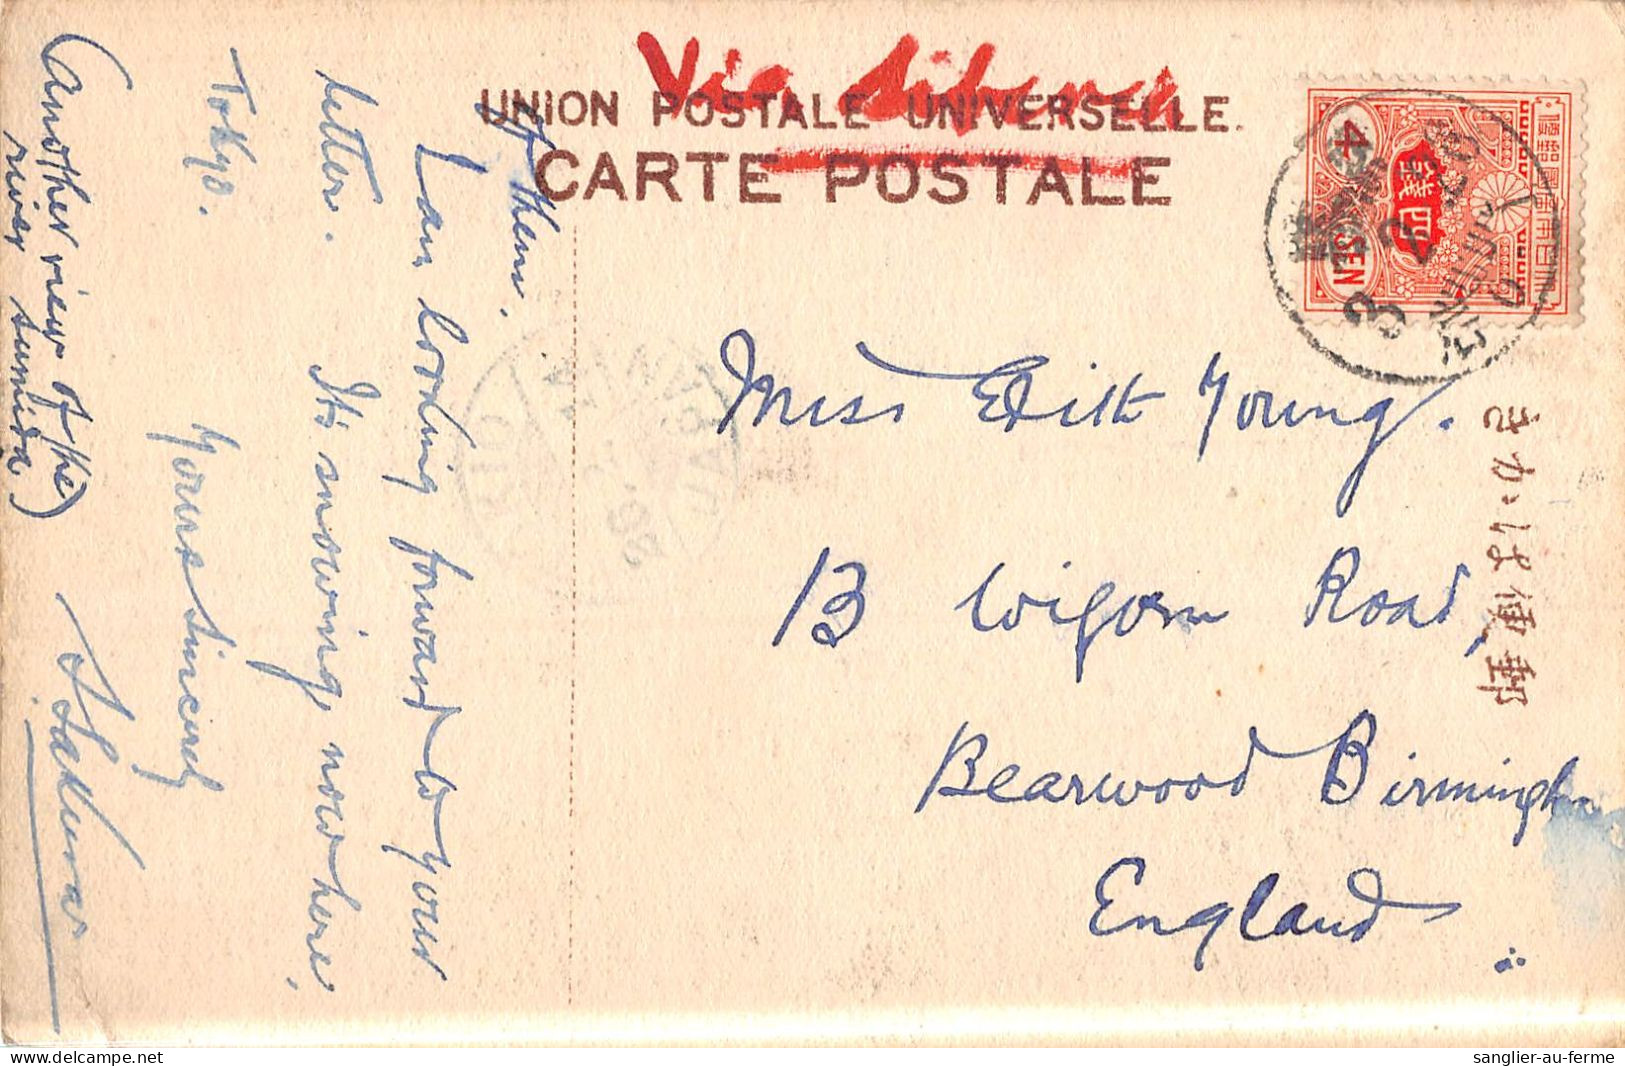 Via Siberia
UNION POSTALE UNIVERSELLE.
CARTE POSTALE
4
SEN
銭四
3 2 20
Miss Edith Young.
13 Wigorn Road,
Bearwood Birmingham
England
きかは便郵
of them.
I am looking forward to your
letter. It's snowing, now here.
Tokyo.
Yours Sincerely
(Another view of the
river Sumida)
sanglier-au-ferme